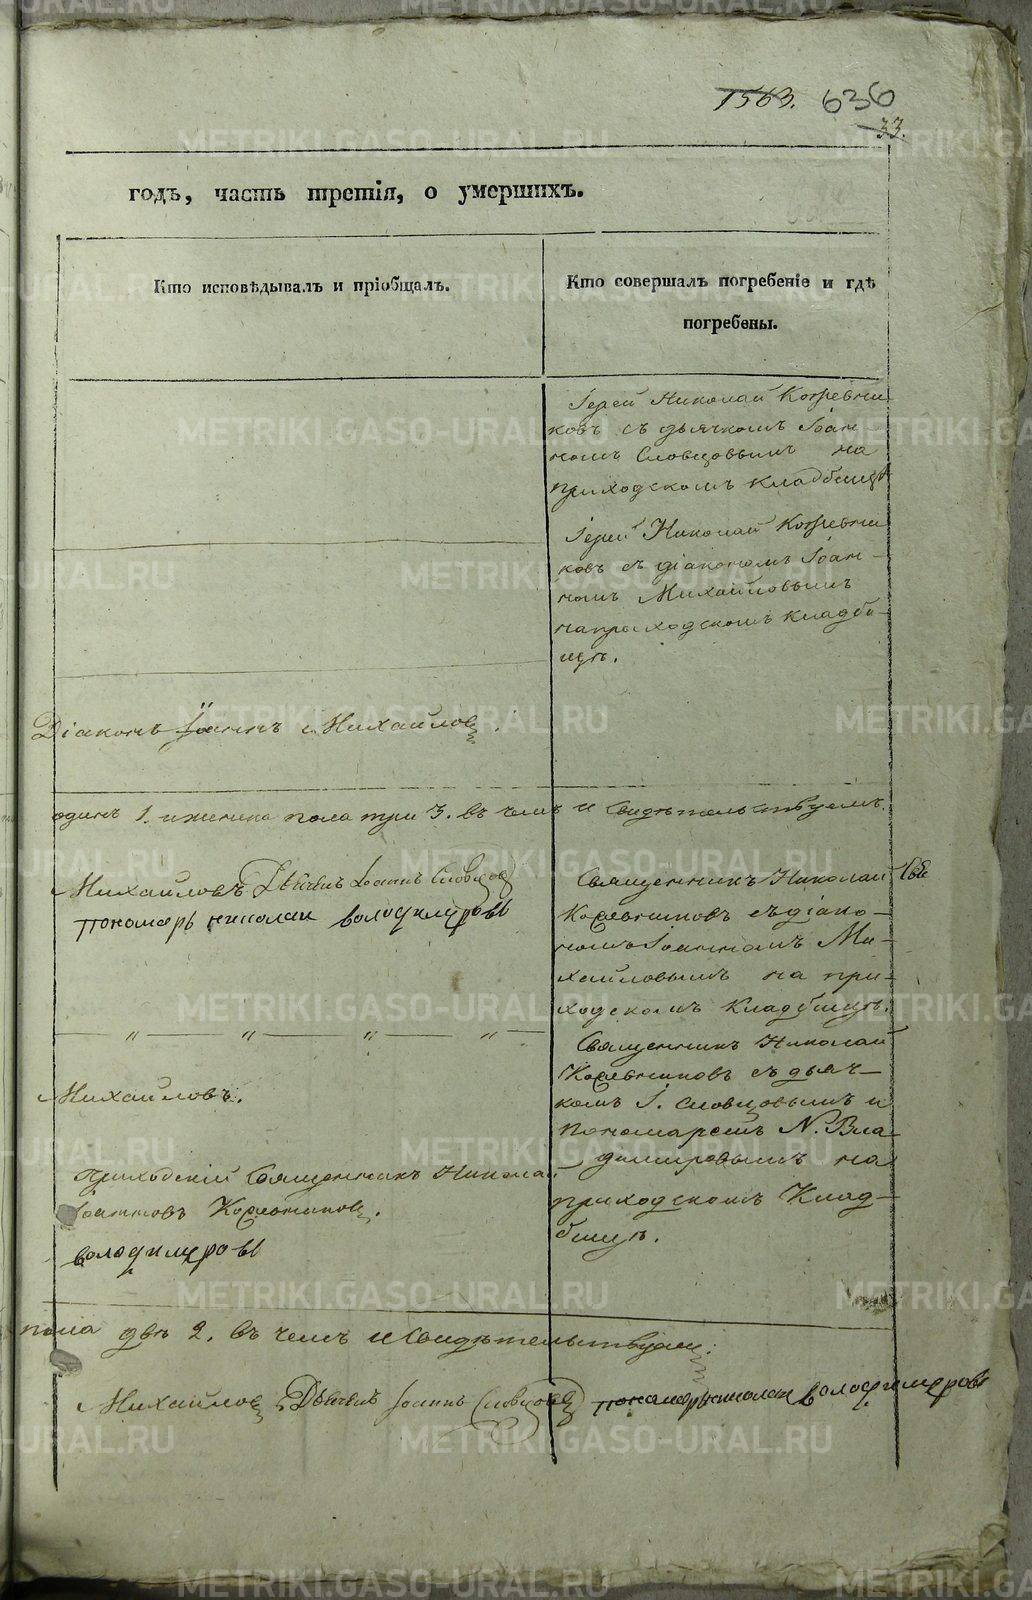 1563. 636
33.
годъ, часть третія, о умершихъ.
Кто исповѣдывалъ и пріобщалъ.
Кто совершалъ погребеніе и гдѣ
погребены.
Іерей Николай Кожевни
ковъ съ дьячкомъ Іоан-
номъ Словцовымъ на
приходскомъ кладбищѣ
Іерей Николай Кожевни
ковъ съ діакономъ Іоан-
номъ Михайловымъ
на приходскомъ кладби-
щѣ.
Діаконъ Іоаннъ Михайловъ.
одинъ 1. и женска пола три 3. въ чемъ и свидѣтельствуемъ.
Михайловъ Дьячекъ Іоаннъ Словцовъ
пономарь николаи володимеровъ
Священникъ Николай
Кожевниковъ съ діако-
номъ Іоанномъ Ми-
хайловымъ на при-
ходскомъ кладбищѣ.
" " " "
Священникъ Николай
Кожевниковъ съ дьяч-
комъ І. Словцовымъ и
пономаремъ Н. Вла-
димировымъ на
приходскомъ Клад-
бищѣ.
Михайловъ.
Приходскій Священникъ Никола
Іоанновъ Кожевниковъ.
володимеровъ
пола двѣ 2. въ чемъ и свидѣтельствуемъ:
Михайловъ Дьячекъ Іоаннъ Словцовъ пономарь николаи володимеровъ
METRIKI.GASO-URAL.RU